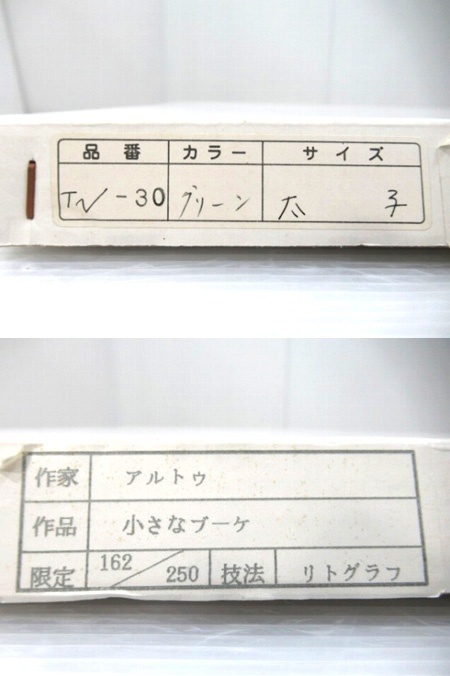 品番 カラー サイズ
TN-30 グリーン 太子
作家 アルトゥ
作品 小さなブーケ
限定 162/250 技法 リトグラフ